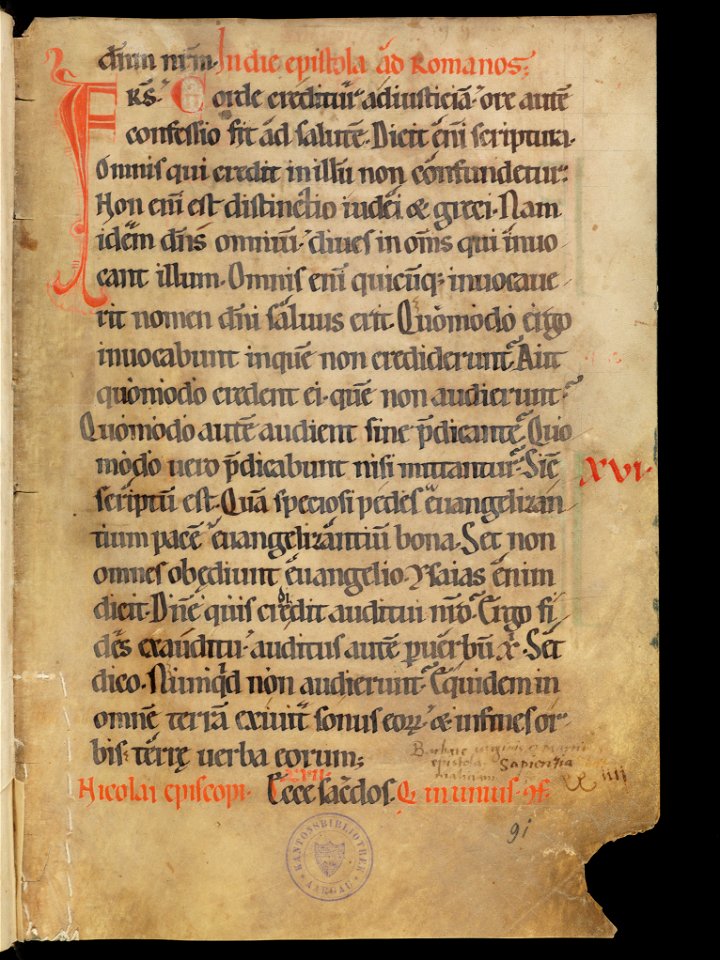 dn̄m nr̄m. In die epistola ad Romanos;
FRS̄. Corde creditur adiusticiā. ore autē
confessio fit ad salutē. Dicit eni̅ scriptura.
Omnis qui credit in illū non confundetur:
Non eni̅ est distinctio iudei & greci. Nam
idēm dn̄s omniū. diues in om̄s qui inuo
cant illum. Omnis eni̅ quicūq; inuocaue
rit nomen dn̄i saluus erit. Quomodo ergo
inuocabunt inquē non crediderunt? Aut
quomodo credent ei. quē non audierunt?
Quomodo autē audient sine p̄dicante? Quo
modo uero p̄dicabunt nisi mittantur? Sic̄
XVI.
scriptū est. Quā speciosi pedes euangelizan
tium pacē euangelizantiū bona. Set non
omnes obędiunt euangelio. Ysaias enim
dicit. Dn̄e quis credit auditui nr̄o? Ergo fi
des exauditu. auditus autē p uerbū xp̄i. Set
dico. Nūmqd non audierunt? Equidem in
omnē terrā exiuit sonus eoꝝ. & infines or
bis terrę uerba eorum;
Barbare uirginis
epistola. Sapienzia
XVII.
Nicolai episcopi. Ecce sacēdos. Q
91
KANTONSBIBLIOTHEK
AARGAU